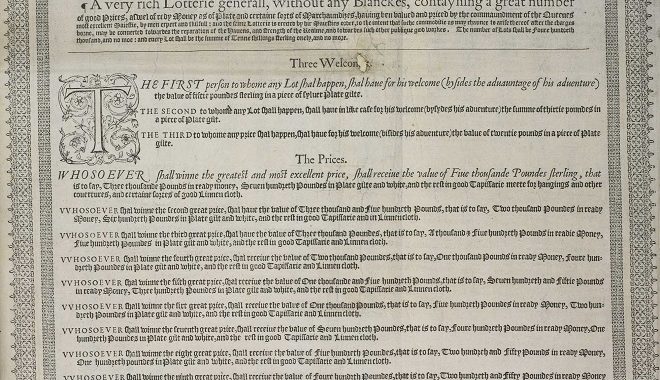 ¶ A very rich Lotterie generall, without any Blanckes, contayning a great number
of good Prices, aswel of redy Money as of Plate and certaine sorts of Marchaundizes, hauing ben valued and priced by the commaundement of the Queenes
most excellent Maiestie, by men expert and skilfull: and the same Lotterie is erected by her Maiesties order, to the intent that such commoditie as may chaunce to arise therof after the charges
borne, may be conuerted towardes the reparation of the Hauens, and strength of the Realme, and towardes such other publique good workes. The number of Lots shall be Foure hundreth
thousand, and no moe: and euery Lot shall be the summe of Tenne shillings sterling onely, and no more.
Three Welcomes.
THE FIRST person to whome any Lot shal happen, shall haue for his welcome (bysides the aduauntage of his aduenture)
the value of fiftie poundes sterling in a piece of syluer Plate gilte.
THE SECOND to whome any Lot shall happen, shall haue in like case for his welcome (bysydes his aduenture) the summe of thirtie poundes in
a piece of Plate gilt.
THE THIRD to whome any price shal happen, shal haue for his welcome (bisides his aduenture) the value of twentie pounds in a piece of Plate
gilte.
The Prices.
WHOSOEVER shall winne the greatest and most excellent price, shall receiue the value of Fiue thousande Poundes sterling, that
is to say, Three thousande Pounds in ready money, Seuen hundreth Poundes in Plate gilte and white, and the rest in good Tapissarie meete for hangings and other
couertures, and certaine sortes of good Linnen cloth.
VVHOSOEVER shal winne the second great price, shal haue the value of Three thousand and fiue hundreth Pounds, that is to say, Two thousand Poundes in ready
Money, Six hundreth Poundes in Plate gilt and white, and the rest in good Tapissarie and in Linnen cloth.
VVHOSOEVER shall winne the third great price, shall haue the value of Three thousand Poundes, that is to say, A thousand & fiue hundreth Poundes in ready Money,
Fiue hundreth Poundes in Plate gilt and white, and the rest in good Tapissarie and Linnen cloth.
VVHOSOEVER shall winne the fourth great price, shal receiue the value of Two thousand Poundes, that is to say, A thousand Poundes in ready Money, Foure hundreth
Poundes in Plate gilt and white, and the rest in good Tapissarie and Linnen cloth.
VVHOSOEVER shall winne the fift great price, shall receiue the value of One thousand and Fiue hundreth Pounds, that is to say, Seuen hundreth and Fiftie Pounds
in ready Money, Three hundreth Poundes in Plate gilt and white, and the rest in good Tapissarie and Linnen cloth.
VVHOSOEVER shall winne the sixt great price, shall receiue the value of One thousand Pounds, that is to say, Fiue hundreth Pounds in ready Money, Two hun-
dreth and Fiftie Pounds in Plate gilt and white, and the rest in good Tapissarie and Linnen cloth.
VVHOSOEVER shall winne the seuenth great price, shall receiue the value of Seuen hundreth Pounds, that is to say, Foure hundreth Poundes in ready Money, One
hundreth Poundes in Plate gilt and white, and the rest in good Tapissarie and Linnen cloth.
VVHOSOEVER shall winne the eight great price, shall receiue the value of Fiue hundreth Poundes, that is to say, Two hundreth and Fifty Poundes in ready Money,
One hundreth Poundes in plate gilt and white, and the rest in good Tapissarie and Linnen cloth.
VVHOSOEVER shall winne the ninth great price, shall receiue the value of Foure hundreth Pounds, that is to say, Two hundreth Poundes in ready Money,